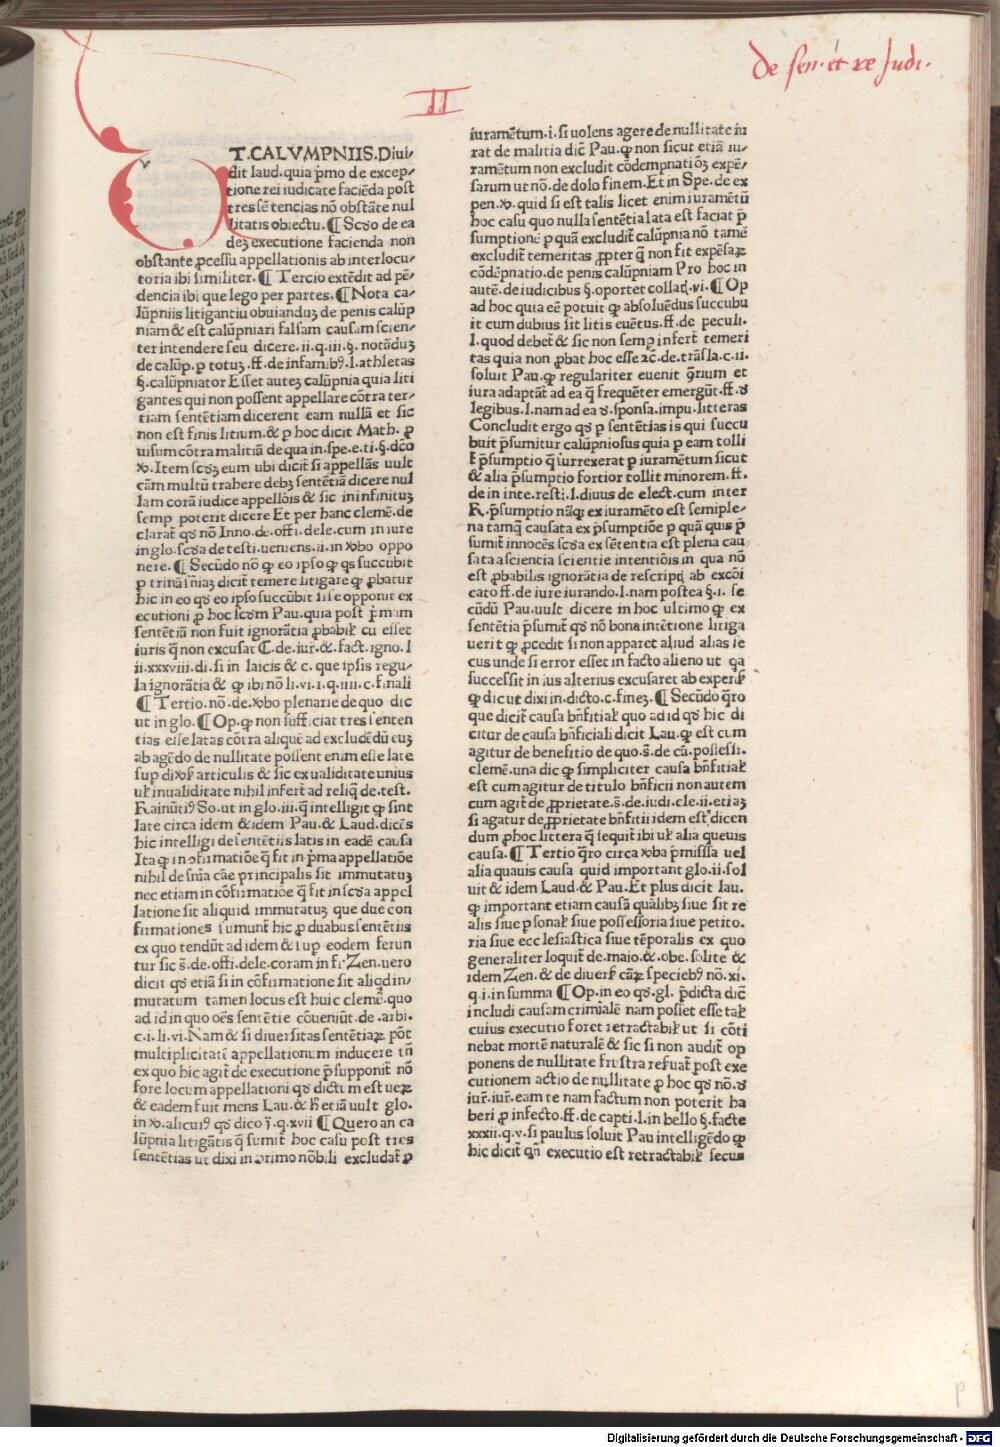 de sen. et re Judi.
II
VT. CALVMPNIIS. Diui⸗
dit laud. quia p̄mo de excep⸗
tione rei iudicate faciēda post
tres sē tencias nō obstāte nul
litatis obiectu. ¶ Scḋo de ea
deꝫ executione facienda non
obstante ꝓcessu appellationis ab interlocu⸗
toria ibi similiter. ¶ Tercio extēdit ad pē⸗
dencia ibi que lego per partes. ¶ Nota ca⸗
lūpniis litigantiū obuianduꝫ de penis calūp
niam & est calūpniari falsam causam scien⸗
ter intendere seu dicere. ii. q. iii. §. notāduꝫ
de calūp. p totuꝫ. ff. de infamibꝰ. l. athletas
§. calūpniator Esset auteꝫ calūpnia quia liti
gantes qui non possent appellare cōtra ter⸗
tiam sentētiam dicerent eam nullā et sic
non est finis litium. & p hoc dicit Math. ꝓ
uisum cōtra malitiā de qua in. spe. e. ti. §. dc̄o
ꝟo. Item scḋꝫ eum ubi dicit̄ si appellās uult
cām multū trahere debꝫ sentētiā dicere nul
lam corā iudice appellōis & sic in infinituꝫ
semp poterit dicere Et per hanc clemē. de
clarat̄ qḋ nō Inno. de. offi. dele. cum in iure
in glo. scḋa de testi. ueniens. ii. in ꝟbo oppo
nere. ¶ Secūdo nō ꝙ eo ipso ꝙ qs succūbit
p trinā sn̄iaꝫ dicit̄ temere litigare ꝙ ꝓbatur
hic in eo qḋ eo ipso succūbit ii se opponit ex
ecutioni ꝓ hoc scḋm Pau. quia post p̄mam
sentētiā non fuit ignorātia ꝓbabil̄ cū esset
iuris q̄ non excusat C. de. iur̄. &. fact. igno. l
ii. xxxviii. di. si in laicis & c. que ipsis regu⸗
la ignorātia & ꝙ ibi nō li. vi. i. q. iiii. c. finali
¶ Tertio. nō. de. ꝟbo plenarie de quo dic
ut in glo. ¶ Op. ꝙ non suff. ciat tres senten
tias esse latas cōtra aliquē ad excludēdū euꝫ
ab agēdo de nullitate possent enim esse late
sup diꝟs̄ articulis & sic ex ualiditate unius
ul̄ inualiditate nihil infert̄ ad reliq̄ de. test.
Rainūtiꝰ So. ut in glo. iii. q̄ intelligit ꝙ sint
late circa idem & idem Pau. & Laud. dicēs
hic intelligi de sentētiis latis in eadē causa
Ita ꝙ in ꝯfirmatiōe q̄ fit in p̄ma appellatiōe
nihil de sn̄ia cāe principalis sit immutatuꝫ
nec etiam in cōfirmatiōe q̄ fit in scḋa appel
latione sit aliquid immutatuꝫ que due con
firmationes sumunt̄ hic ꝓ duabus sentētiis
ex quo tendūt ad idem & sup eodem ferun
tur sic s̄. de. offi. dele. coram in fi. Zen. uero
dicit qḋ etiā si in cōfirmatione sit aliqḋ in⸗
mutatum tamen locus est huic clemē. quo
ad id in quo oēs sentētie cōueniūt. de. arbi.
c. i. li. vi. Nam & si diuersitas sentētiaꝝ pōt
multiplicitatē appellationum inducere tn̄
ex quo hic agit̄ de executione p̄supponit̄ nō
fore locum appellationi qḋ dictum est ueꝝ
& eadem fuit mens Lau. & h̄ etiā uult glo.
in ꝟo. alicuiꝰ qḋ dico j̄. q. xvii ¶ Quero an ca
lūpnia litigātis q̄ sumit̄ hoc casu post tres
sentētias ut dixi in primo nōbili excludat̄ ꝓ
iuramētum. i. si uolens agere de nullitate iu
rat de malitia dic̄ Pau. ꝙ non sicut etiā iu⸗
ramētum non excludit cōdempnatiōꝫ expē⸗
sarum ut nō. de dolo finem. Et in Spe. de ex
pen. ꝟo. quid si est talis licet enim iuramētū
hoc casu quo nulla sentētia lata est faciat p̄
sumptionē p quā excludit̄ calūpnia nō tamē
excludit̄ temeritas ꝓpter q̄ non fit expēsaꝝ
cōdēpnatio. de penis calūpniam Pro hoc in
autē. de iudicibus §. oportet collaꝗ. vi. ¶ Op
ad hoc quia eē potuit ꝙ absoluēdus succubu
it cum dubius sit litis euētus. ff. de peculi.
l. quod debet̄ & sic non semp infert̄ temeri
tas quia non ꝓbat hoc esse ꝛc̄. de. trāsla. c. ii.
soluit Pau. ꝙ regulariter euenit ꝯrium et
iura adaptāt̄ ad ea q̄ frequēter emergūt. ff. ꝺ
legibus. l. nam ad ea ꝺ. sponsa. impu. litteras
Concludit ergo qḋ p sentētias is qui succu
buit p̄sumitur calūpniosus quia p eam tolli
t̄ p̄sumptio q̄ surrexerat p iuramētum sicut
& alia p̄sumptio fortior tollit minorem. ff.
de in inte. resti. l. diuus de elect. cum inter
R. p̄sumptio nāqꝫ ex iuramēto est semiple⸗
na tamq̄ causata ex p̄sumptiōe p quā quis p̄
sumit̄ innocēs scḋa ex sētentia est plena cau
sata a scientia scientie intentiōis in qua nō
est ꝓbabilis ignorātia de rescripꝗ ab excōi
cato ff. de iure iurando. l. nam postea §. i. se
cūdū Pau. uult dicere in hoc ultimo ꝙ ex
sentētia p̄sumit̄ qḋ nō bona intētione litiga
uerit ꝙ ꝓcedit si non apparet aliud alias se
cus unde si error esset in facto alieno ut qa
successit in ius alterius excusaret ab experis̄
ꝙ dic ut dixi in. dicto. c. fineꝫ. ¶ Secūdo q̄ro
que dicit̄ causa bn̄fitial̄ quo ad id qḋ hic di
citur de causa bn̄ficiali dicit Lau. ꝙ est cum
agitur de benefitio de quo. s̄. de cā. possessi.
clemē. una dic ꝙ simpliciter causa bn̄fitial̄
est cum agitur de titulo bn̄ficii non autem
cum agit̄ de ꝓprietate. s̄. de. iudi. cle. ii. etiaꝫ
si agatur de ꝓprietate bn̄fitii idem est dicen
dum ꝓ hoc littera q̄ sequit̄ ibi ul̄ alia queuis
causa. ¶ Tertio q̄ro circa ꝟba p̄missa uel
alia quauis causa quid important glo. ii. sol
uit & idem Laud. & Pau. Et plus dicit lau.
ꝙ important etiam causā quālibꝫ siue sit re
alis siue p sonal̄ siue possessoria siue petito.
ria siue ecc lesiastica siue tēporalis ex quo
generaliter loquit̄ de. maio. &. obe. solite &
idem Zen. & de diuers̄ cāꝝ speciebꝰ nō. xi.
q. i. in summa ¶ Op. in eo qḋ. gl. p̄dicta dic̄
includi causam crimialē nam posset esse tal̄
cuius executio foret retractabil̄ ut si cōti
nebat mortē naturalē & sic si non audit̄ op
ponens de nullitate frustra refuat̄ post exe
cutionem actio de nullitate ꝓ hoc qḋ nō. ꝺ
iur̄. iur̄. eam te nam factum non poterit ha
beri ꝓ infecto. ff. de capti. l. in bello §. facte
xxxii. q. v. si paulus soluit Pau intelligēdo ꝙ
hic dicit̄ qn̄ executio est retractabil̄ secus
p
Digitalisierung gefördert durch die Deutsche Forschungsgemeinschaft - DFG